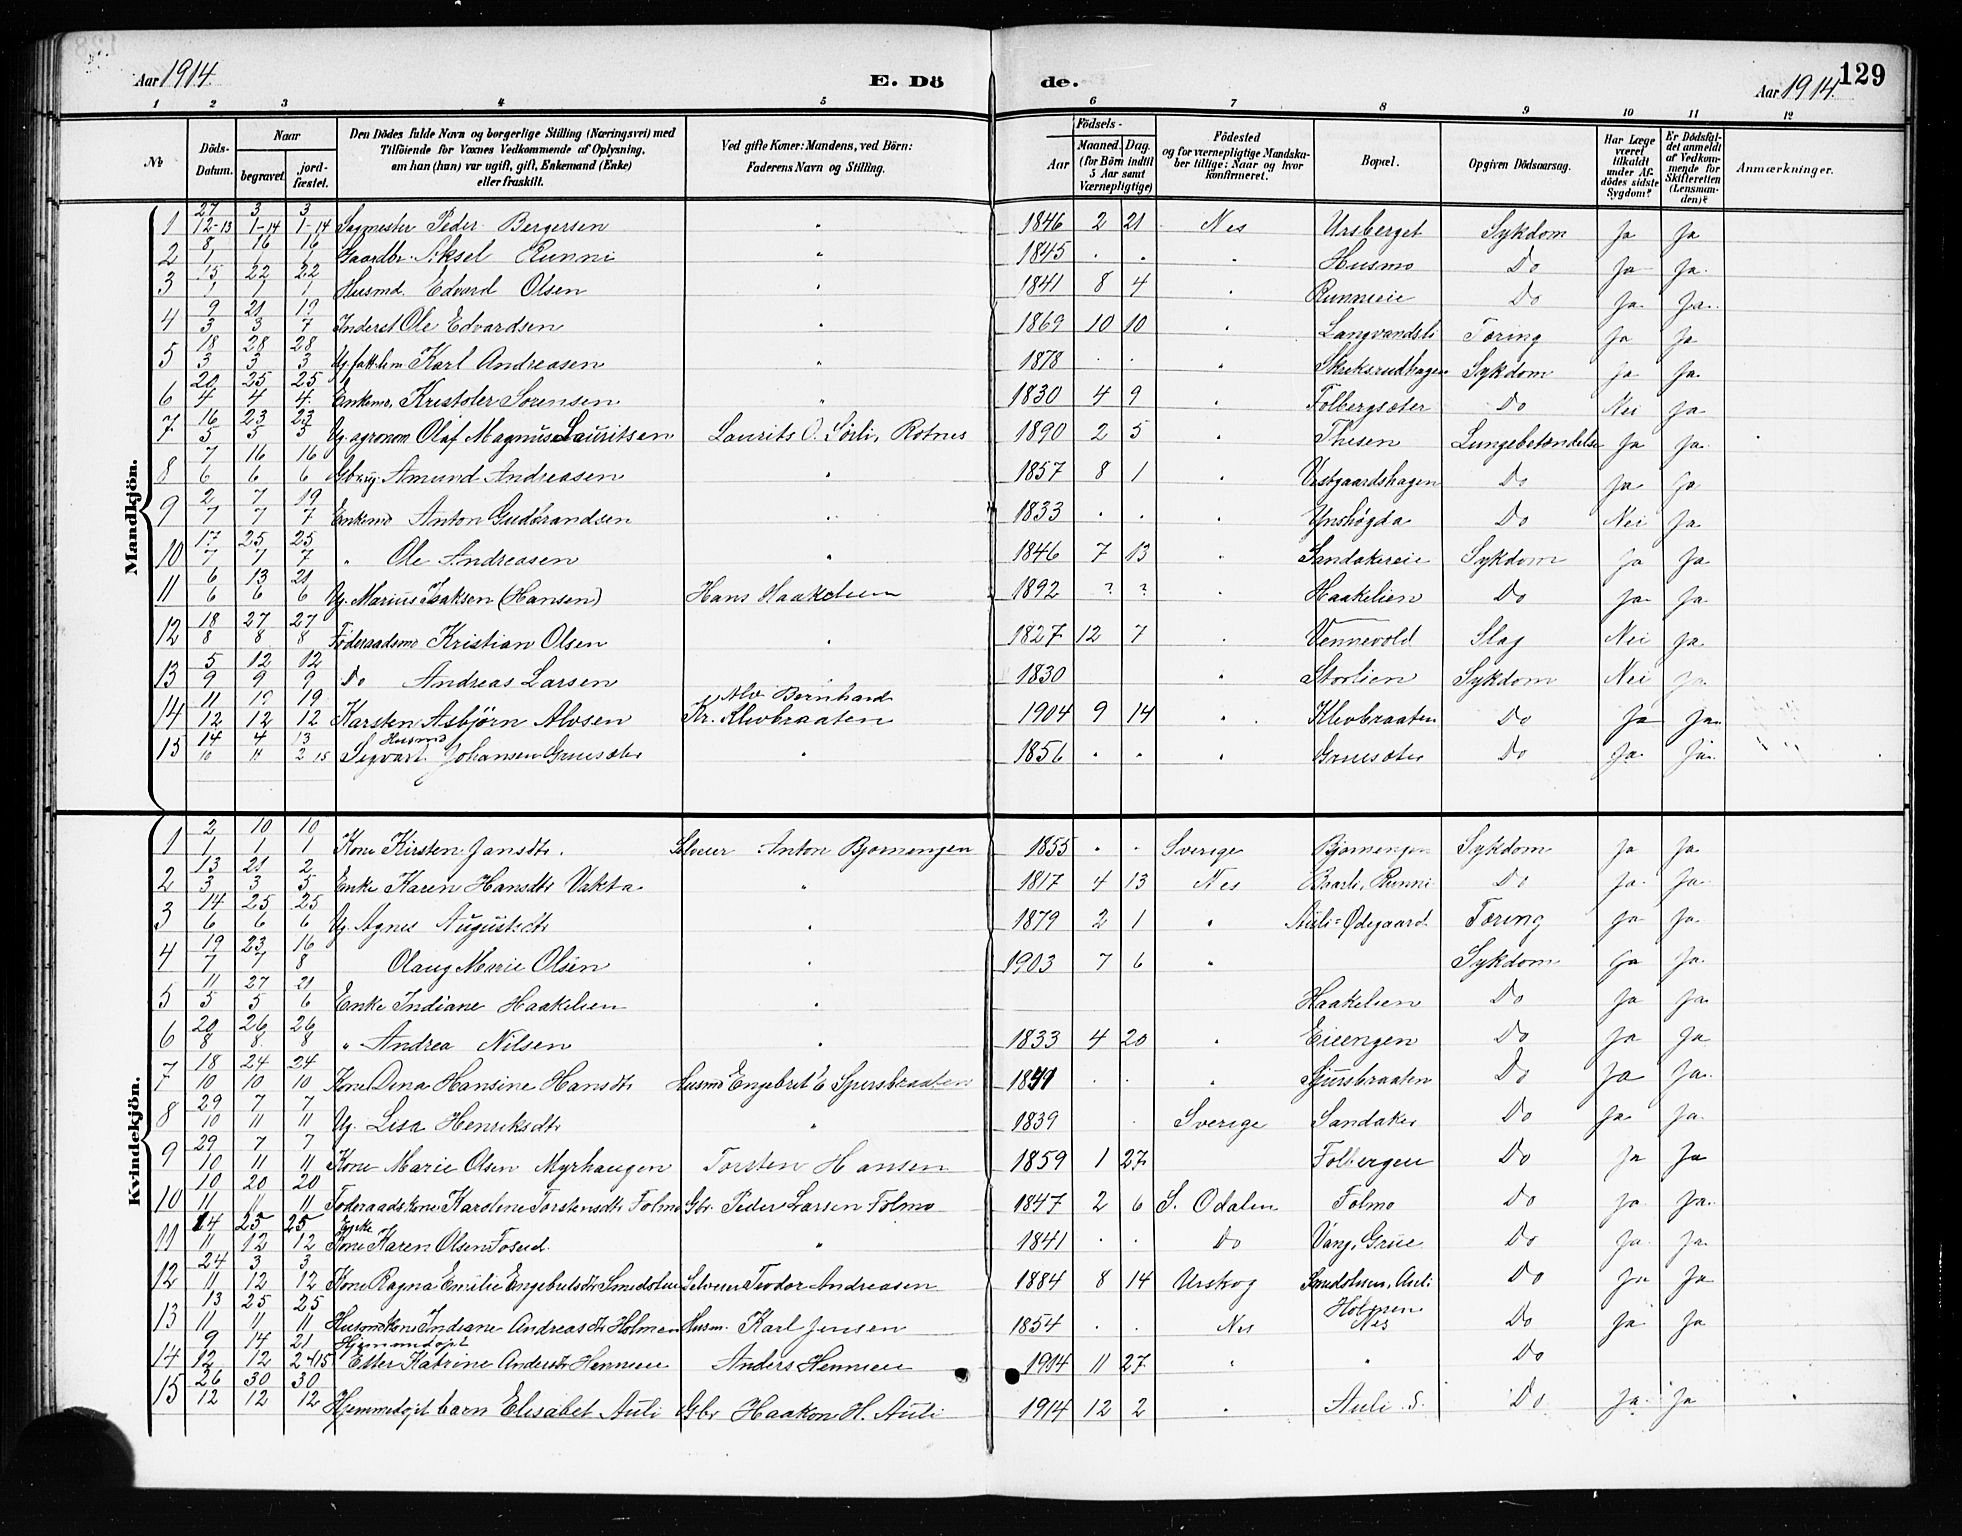 Aar 1914. E. Dö de. Aar 1914. 129
1 2 3 4 5 6 7 8 9 10 11 12
No
Döds-Datum.
Naar begravet. jordfæstet.
Den Dödes fulde Navn og borgerlige Stilling (Næringsvei) med
Tilföiende for Voxnes Vedkommende af Oplysning,
om han (hun) var ugift, gift, Enkemand (Enke)
eller fraskilt.
Ved gifte Koner: Mandens, ved Börn:
Faderens Navn og Stilling.
Födsels-
Aar
Maaned. Dag.
(for Börn indtil
5 Aar samt
Værnepligtige)
Födested
og for værnepligtige Mandskaber tillige: Naar og hvor
konfirmeret.
Bopæl.
Opgiven Dödsaarsag.
Har Læge
været
tilkaldt
under Afdödes sidste
Sygdom?
Er Dödsfaldet anmeldt
af Vedkommende for
Skifteretten
(Lensmanden)?
Anmærkninger.
Mandkjön.
1 27/12-13 3/1-14 3/1-14 Sagmester Peder Bergersen " 1846 2 21 Nes Ursberget Sykdom Ja Ja
2 8/1 16/1 16/1 Gaardbr. Aksel Runni " 1845 . . " Husmo Do Ja Ja.
3 15/1 22/1 22/1 Husmd. Edvard Olsen " 1841 8 4 " Runnieie Do Ja Ja.
4 9/3 21/3 19/7 Inderst Ole Edvardsen " 1869 10 10 " Langvandsli Tæring Ja Ja
5 18/3 28/3 28/3 Ug. fatt.lem Karl Andreasen " 1878 . . " Skuksrudhagen Sykdom Ja Ja.
6 20/4 25/4 25/4 Enkem. Kristofer Sorensen " 1830 4 9 " Folbergsæter Do Nei Ja
7 16/5 23/5 23/5 Ug. agronom Olaf Magnus Lauritsen Laurits O. Sörli, Rotnes 1890 2 5 " Thesen Lungebetændelse Ja Ja
8 7/6 16/6 16/6 Gbrug. Amund Andreasen " 1857 8 1 " Vestgaardshagen Do Ja Ja
9 2/7 7/7 19/7 Enkem. Anton Gudbrandsen " 1833 . . " Ynshögda Do Nei Ja
10 17/7 25/7 25/7 " Ole Andreasen " 1846 7 13 " Sandakereie Sykdom Ja Ja
11 6/6 13/6 21/6 Ug. Marius Isaksen (Hansen) Hans Haakelien 1892 ? ? " Haakelien Do Ja Ja
12 18/8 27/8 27/8 Föderaadsm. Kristian Olsen " 1827 12 7 " Vennevold Slag Nei Ja
13 5/9 12/9 12/9 Do Andreas Larsen 1830 " Storlien Sykdom Nei Ja
14 11/12 19/12 19/12 Karsten Asbjörn Alvsen Alv Bernhard Kr. Klevbraaten 1904 9 14 " Klevbraaten Do Ja Ja
15 14/10 4/11 13/2 15 Husmd Segvart Johansen Gruesæter " 1856 . . " Gruesæter Do Ja Ja
Kvindekjön.
1 2/1 10/1 10/1 Kone Kirsten Jansdtr. Selveier Anton Bjornengen 1855 . . Sverige Bjornengen Sykdom Ja Ja
2 13/3 21/3 2/5 Enke Karen Hansdtr Vakta " 1817 4 13 Nes Baarli, Runni Do Ja Ja
3 14/6 25/6 25/6 Ug. Agnes Augustsdtr " 1879 2 1 " Auli-Ødegaard Tæring Ja Ja
4 19/7 23/7 16/8 Olaug Marie Olsen " 1903 7 6 " Sykdom Ja Ja.
5 11/5 27/5 21/6 Enke Indiane Haakelien " Haakelien Do Ja Ja
6 20/8 26/8 26/8 " Andrea Nilsen " 1833 4 20 " Eieengen Do Ja Ja
7 18/10 24/10 24/10 Kone Dina Hansine Hansdtr Husmd Engebret E Spersbraaten 1841 . . " Sjursbraaten Do Ja Ja.
8 29/10 7/11 7/11 Ug. Lisa Henriksdtr " 1839 . Sverige Sandaker Do Ja Ja
9 29/10 7/11 7/11 Kone Marie Olsen Myrhaugen Torsten Hansen 1859 1 27 Folbergeie Do Ja Ja
10 10/11 20/11 20/11 Föderaadskone Karoline Torstensdtr Folmo Gbr. Peder Larsen Folmo 1847 2 6 S. Odalen Folmo Do Ja Ja
11 14/11 25/12 25/12 Enke Kone Karen Olsen Fosud. " 1841 . . Do Vang, Grue Do Ja Ja.
12 24/11 3/12 3/12 Kone Ragna Emilie Engebretsdtr Smedstuen Selveier Teodor Andreasen 1884 8 14 Urskog Smedstuen, Auli Do Ja Ja
13 13/11 25/11 25/11 Husmdkone Indiane Andreasdtr Holmen Husm. Karl Jensen 1854 . . Nes Holmen Nes Do Ja Ja
14 9/12 14/12 21/2-15 Hjemmedöpt Ester Katrine Andersdtr Hennieie Anders Hennieie 1914 11 27 " " Do
15 26/12 30/12 30/12 Hjemmedöpt barn Elisabet Auli Gbr Haakon H. Auli 1914 12 2 " Auli S. Do Ja. Ja